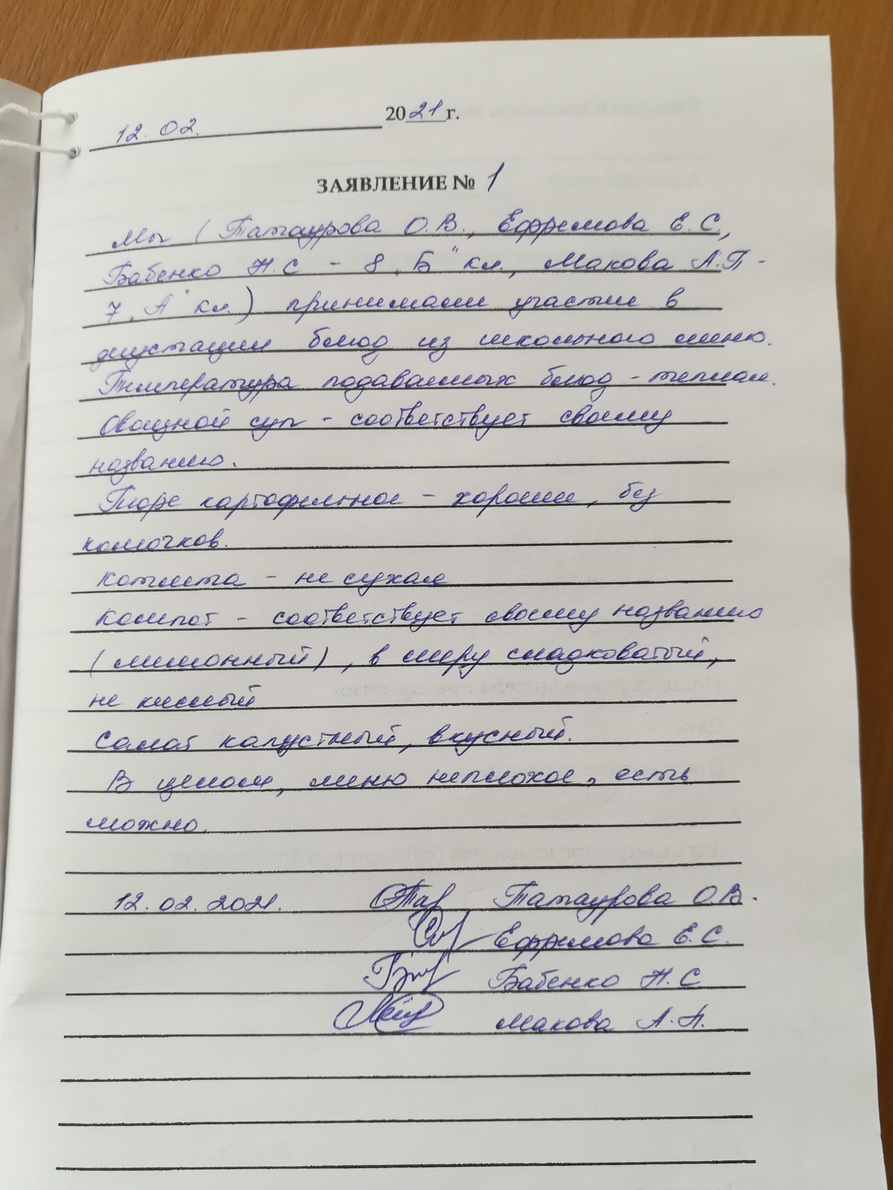 12.02. 2021 г.
ЗАЯВЛЕНИЕ № 1
Мы (Татаурова О.В., Ефремова Е.С.,
Бабенко Н.С - 8 „Б" кл., Макова А.П -
7 „А" кл.) принимали участие в
дегустации блюд из школьного меню.
Температура подаваемых блюд - теплая.
Овощной суп - соответствует своему
названию.
Пюре картофельное - хорошее, без
комочков.
Котлета - не сухая
Компот - соответствует своему названию
(лимонный), в меру сладковатый,
не кислый
Салат капустный, вкусный.
В целом, меню неплохое, есть
можно.
12.02.2021. Татаурова О.В.
Ефремова Е.С.
Бабенко Н.С
Макова А.П.